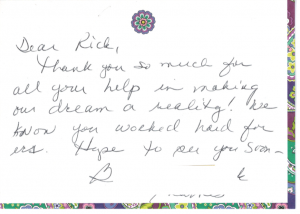 Dear Rick,
Thank you so much for
all your help in making
our dream a reality! We
know you worked hard for
us. Hope to see you soon-
B